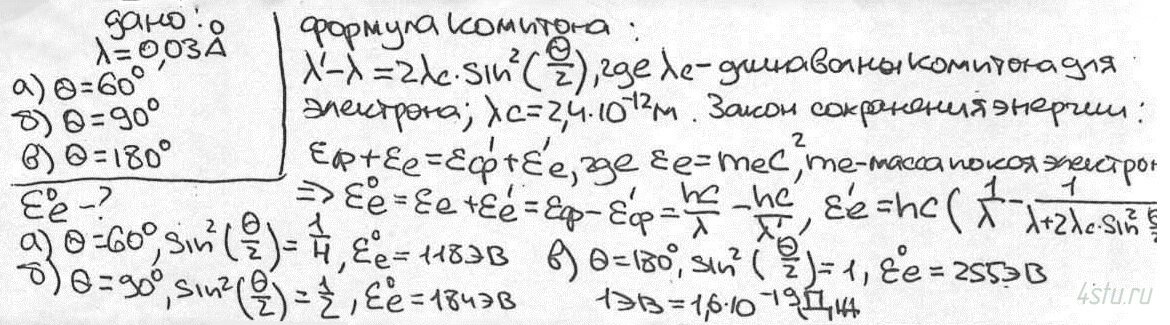 дано:
λ=0,03Å
а) θ=60°
б) θ=90°
в) θ=180°
εe°-?
формула комптона:
λ'-λ=2λc·sin²(θ/2), где λc-длина волны комптона для
электрона; λc=2,4·10⁻¹²м. Закон сохранения энергии:
εф+εe=εф'+εe', где εe=mec², me-масса покоя электрон
=> εe°=εe+εe'=εф-εф'=hc/λ-hc/λ', εe'=hc(1/λ-1/(λ+2λc·sin²θ/2
а) θ=60°, sin²(θ/2)=1/4, εe°=118эВ
б) θ=90°, sin²(θ/2)=1/2, εe°=184эВ
в) θ=180°, sin²(θ/2)=1, εe°=255эВ
1эВ=1,6·10⁻¹⁹Дж
4stu.ru